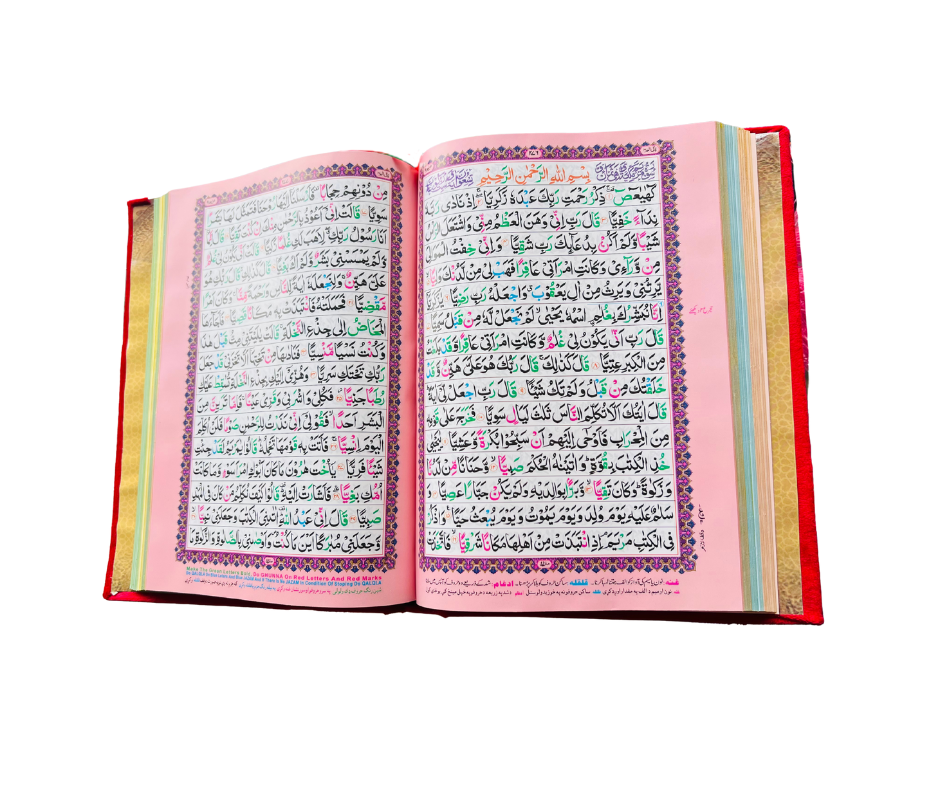 بِسْمِ اللهِ الرَّحْمٰنِ الرَّحِيْمِ
كٓهٰيٰعٓصٓ ذِكْرُ رَحْمَتِ رَبِّكَ عَبْدَهٗ زَكَرِيَّا اِذْ نَادٰى رَبَّهٗ
نِدَآءً خَفِيًّا قَالَ رَبِّ اِنِّيْ وَهَنَ الْعَظْمُ مِنِّيْ وَاشْتَعَلَ الرَّاْسُ
شَيْبًا وَّلَمْ اَكُنْۢ بِدُعَآئِكَ رَبِّ شَقِيًّا وَاِنِّيْ خِفْتُ الْمَوَالِيَ
مِنْ وَّرَآءِيْ وَكَانَتِ امْرَاَتِيْ عَاقِرًا فَهَبْ لِيْ مِنْ لَّدُنْكَ وَلِيًّا
يَّرِثُنِيْ وَيَرِثُ مِنْ اٰلِ يَعْقُوْبَ وَاجْعَلْهُ رَبِّ رَضِيًّا يٰزَكَرِيَّا
اِنَّا نُبَشِّرُكَ بِغُلٰمِ اسْمُهٗ يَحْيٰى لَمْ نَجْعَلْ لَّهٗ مِنْ قَبْلُ سَمِيًّا
قَالَ رَبِّ اَنّٰى يَكُوْنُ لِيْ غُلٰمٌ وَّكَانَتِ امْرَاَتِيْ عَاقِرًا وَّقَدْ بَلَغْتُ
مِنَ الْكِبَرِ عِتِيًّا قَالَ كَذٰلِكَ قَالَ رَبُّكَ هُوَ عَلَيَّ هَيِّنٌ وَّقَدْ
خَلَقْتُكَ مِنْ قَبْلُ وَلَمْ تَكُ شَيْـًٔا قَالَ رَبِّ اجْعَلْ لِّيْٓ اٰيَةً
قَالَ اٰيَتُكَ اَلَّا تُكَلِّمَ النَّاسَ ثَلٰثَ لَيَالٍ سَوِيًّا فَخَرَجَ عَلٰى قَوْمِهٖ
مِنَ الْمِحْرَابِ فَاَوْحٰٓى اِلَيْهِمْ اَنْ سَبِّحُوْا بُكْرَةً وَّعَشِيًّا يٰيَحْيٰى
خُذِ الْكِتٰبَ بِقُوَّةٍ وَاٰتَيْنٰهُ الْحُكْمَ صَبِيًّا وَّحَنَانًا مِّنْ لَّدُنَّا
وَزَكٰوةً وَكَانَ تَقِيًّا وَّبَرًّاۢ بِوَالِدَيْهِ وَلَمْ يَكُنْ جَبَّارًا عَصِيًّا وَ
سَلٰمٌ عَلَيْهِ يَوْمَ وُلِدَ وَيَوْمَ يَمُوْتُ وَيَوْمَ يُبْعَثُ حَيًّا وَاذْكُرْ
فِي الْكِتٰبِ مَرْيَمَ اِذِ انْتَبَذَتْ مِنْ اَهْلِهَا مَكَانًا شَرْقِيًّا فَاتَّخَذَتْ
مِنْ دُوْنِهِمْ حِجَابًا فَاَرْسَلْنَآ اِلَيْهَا رُوْحَنَا فَتَمَثَّلَ لَهَا بَشَرًا
سَوِيًّا قَالَتْ اِنِّيْٓ اَعُوْذُ بِالرَّحْمٰنِ مِنْكَ اِنْ كُنْتَ تَقِيًّا قَالَ اِنَّمَآ
اَنَا رَسُوْلُ رَبِّكِ لِاَهَبَ لَكِ غُلٰمًا زَكِيًّا قَالَتْ اَنّٰى يَكُوْنُ لِيْ غُلٰمٌ
وَّلَمْ يَمْسَسْنِيْ بَشَرٌ وَّلَمْ اَكُ بَغِيًّا قَالَ كَذٰلِكِ قَالَ رَبُّكِ هُوَ
عَلَيَّ هَيِّنٌ وَلِنَجْعَلَهٗٓ اٰيَةً لِّلنَّاسِ وَرَحْمَةً مِّنَّا وَكَانَ اَمْرًا
مَّقْضِيًّا فَحَمَلَتْهُ فَانْتَبَذَتْ بِهٖ مَكَانًا قَصِيًّا فَاَجَآءَهَا
الْمَخَاضُ اِلٰى جِذْعِ النَّخْلَةِ قَالَتْ يٰلَيْتَنِيْ مِتُّ قَبْلَ هٰذَا
وَكُنْتُ نَسْيًا مَّنْسِيًّا فَنَادٰىهَا مِنْ تَحْتِهَآ اَلَّا تَحْزَنِيْ قَدْ جَعَلَ
رَبُّكِ تَحْتَكِ سَرِيًّا وَهُزِّيْٓ اِلَيْكِ بِجِذْعِ النَّخْلَةِ تُسٰقِطْ عَلَيْكِ
رُطَبًا جَنِيًّا فَكُلِيْ وَاشْرَبِيْ وَقَرِّيْ عَيْنًا فَاِمَّا تَرَيِنَّ مِنَ
الْبَشَرِ اَحَدًا فَقُوْلِيْٓ اِنِّيْ نَذَرْتُ لِلرَّحْمٰنِ صَوْمًا فَلَنْ اُكَلِّمَ
الْيَوْمَ اِنْسِيًّا فَاَتَتْ بِهٖ قَوْمَهَا تَحْمِلُهٗ قَالُوْا يٰمَرْيَمُ لَقَدْ جِئْتِ
شَيْـًٔا فَرِيًّا يٰٓاُخْتَ هٰرُوْنَ مَا كَانَ اَبُوْكِ امْرَاَ سَوْءٍ وَّمَا كَانَتْ
اُمُّكِ بَغِيًّا فَاَشَارَتْ اِلَيْهِ قَالُوْا كَيْفَ نُكَلِّمُ مَنْ كَانَ فِي الْمَهْدِ
صَبِيًّا قَالَ اِنِّيْ عَبْدُ اللهِ اٰتٰىنِيَ الْكِتٰبَ وَجَعَلَنِيْ نَبِيًّا
وَّجَعَلَنِيْ مُبٰرَكًا اَيْنَ مَا كُنْتُ وَاَوْصٰنِيْ بِالصَّلٰوةِ وَالزَّكٰوةِ مَا